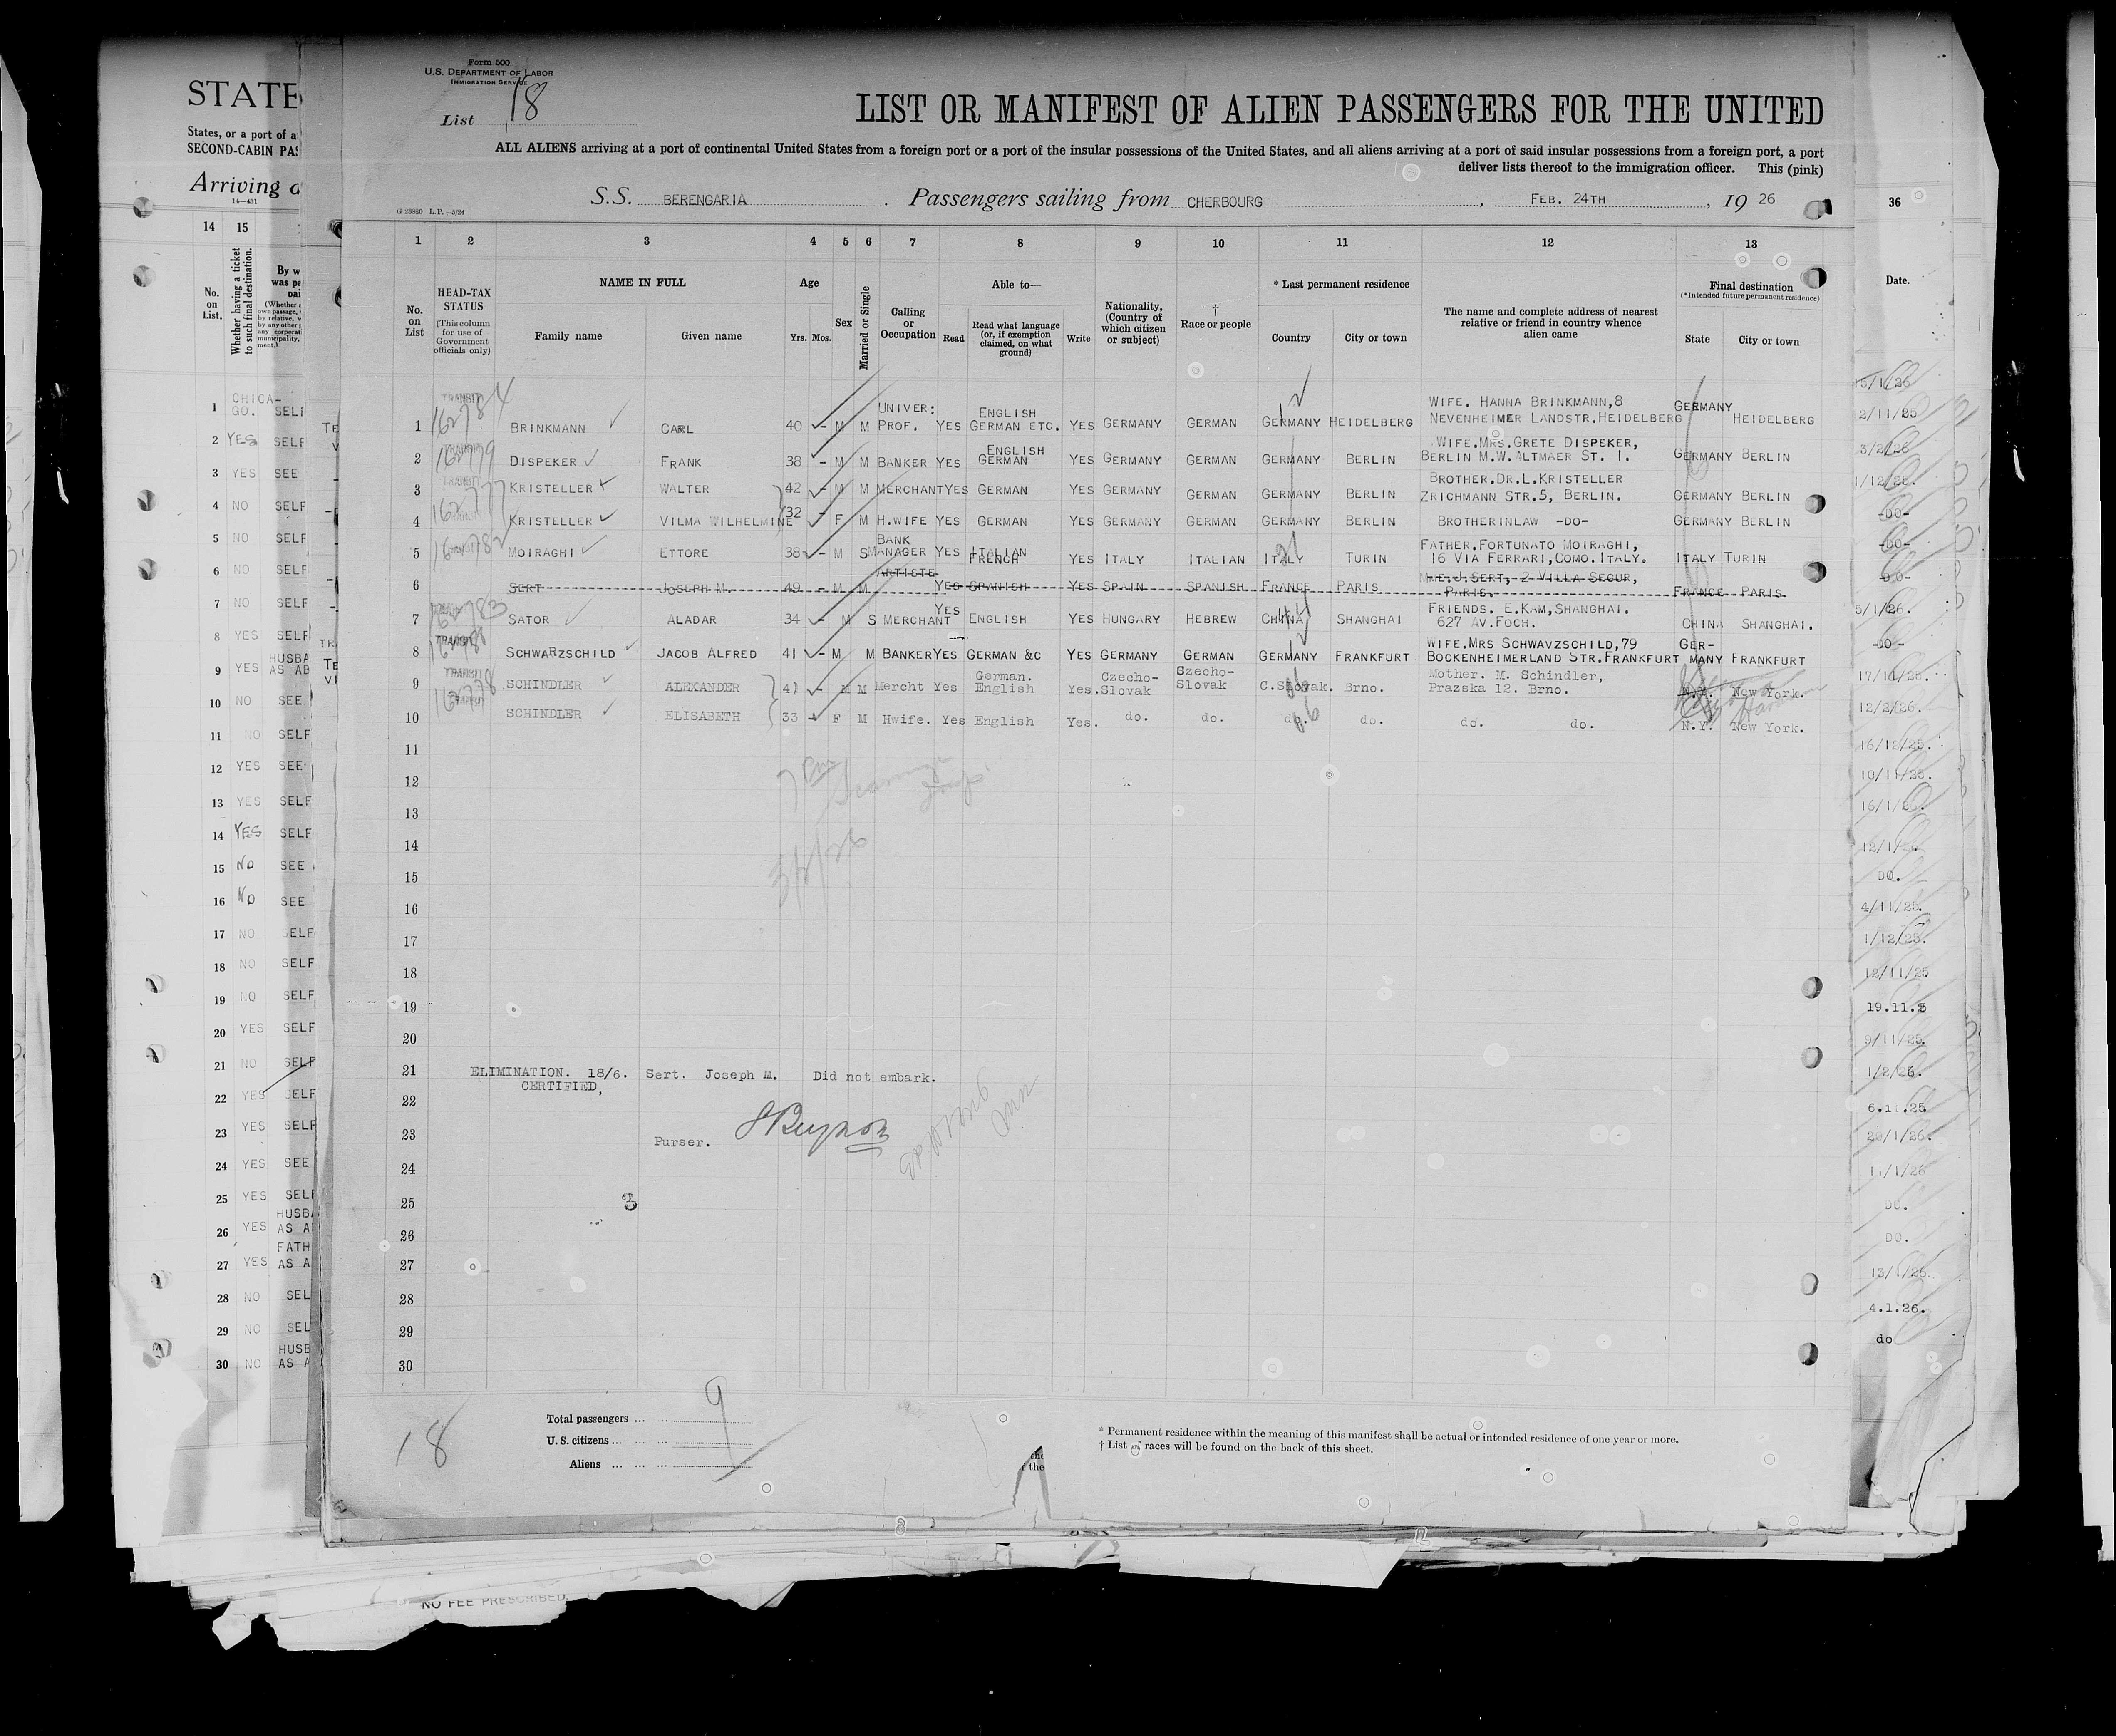 Form 500
U.S. DEPARTMENT OF LABOR
IMMIGRATION SERVICE
List 18
LIST OR MANIFEST OF ALIEN PASSENGERS FOR THE UNITED
ALL ALIENS arriving at a port of continental United States from a foreign port or a port of the insular possessions of the United States, and all aliens arriving at a port of said insular possessions from a foreign port, a port
deliver lists thereof to the immigration officer. This (pink)
S.S. BERENGARIA . Passengers sailing from CHERBOURG , FEB. 24TH , 19 26
G 23880 L.P. —5/24
1 2 3 4 5 6 7 8 9 10 11 12 13
No. on List
HEAD-TAX STATUS (This column for use of Government officials only)
NAME IN FULL
Family name Given name
Age Yrs. Mos.
Sex
Married or Single
Calling or Occupation
Able to—
Read Read what language (or, if exemption claimed, on what ground) Write
Nationality, (Country of which citizen or subject)
† Race or people
* Last permanent residence
Country City or town
The name and complete address of nearest relative or friend in country whence alien came
Final destination (*Intended future permanent residence)
State City or town
1 TRANSIT 162784 BRINKMANN CARL 40 – M M UNIVER: PROF. YES ENGLISH GERMAN ETC. YES GERMANY GERMAN GERMANY HEIDELBERG WIFE. HANNA BRINKMANN,8 NEVENHEIMER LANDSTR.HEIDELBERG GERMANY HEIDELBERG
2 162779 DISPEKER FRANK 38 – M M BANKER YES ENGLISH GERMAN YES GERMANY GERMAN GERMANY BERLIN WIFE.MRS.GRETE DISPEKER, BERLIN M.W.ALTMAER ST. 1. GERMANY BERLIN
3 TRANSIT 162777 KRISTELLER WALTER 42 – M M MERCHANT YES GERMAN YES GERMANY GERMAN GERMANY BERLIN BROTHER.DR.L.KRISTELLER ZRICHMANN STR.5, BERLIN. GERMANY BERLIN
4 KRISTELLER VILMA WILHELMINE 32 – F M H.WIFE YES GERMAN YES GERMANY GERMAN GERMANY BERLIN BROTHERINLAW -DO- GERMANY BERLIN
5 162782 MOIRAGHI ETTORE 38 – M S BANK MANAGER YES ITALIAN FRENCH YES ITALY ITALIAN ITALY TURIN FATHER.FORTUNATO MOIRAGHI, 16 VIA FERRARI,COMO.ITALY. ITALY TURIN
6 SERT JOSEPH M. 49 – M M ARTISTE YES SPANISH YES SPAIN SPANISH FRANCE PARIS MME.J.SERT, 2 VILLA SEGUR, PARIS. FRANCE PARIS
7 162783 SATOR ALADAR 34 – M S MERCHANT YES ENGLISH YES HUNGARY HEBREW CHINA SHANGHAI FRIENDS. E.KAM,SHANGHAI. 627 AV.FOCH. CHINA SHANGHAI.
8 TRANSIT SCHWARZSCHILD JACOB ALFRED 41 – M M BANKER YES GERMAN &C YES GERMANY GERMAN GERMANY FRANKFURT WIFE.MRS SCHWAVZSCHILD,79 BOCKENHEIMERLAND STR.FRANKFURT GERMANY FRANKFURT
9 TRANSIT 162778 SCHINDLER ALEXANDER 41 – M M Mercht Yes German. English Yes. Czecho-Slovak Szecho-Slovak C.Slovak. Brno. Mother. M. Schindler, Prazska 12. Brno. N.Y. New York.
10 SCHINDLER ELISABETH 33 – F M Hwife. Yes English Yes. do. do. do. do. do. do. N.Y. New York.
11
12
13
14
15
16
17
18
19
20
21 ELIMINATION. 18/6. Sert. Joseph M. Did not embark.
CERTIFIED,
22
23 Purser.
24
25 3
26
27
28
29
30
18
Total passengers ... ... 9
U. S. citizens ... ... ...
Aliens ... ... ...
* Permanent residence within the meaning of this manifest shall be actual or intended residence of one year or more.
† List of races will be found on the back of this sheet.
STATE
States, or a port of a
SECOND-CABIN PAS
Arriving a
14—431
14 15
No. on List.
Whether having a ticket to such final destination.
By w
was pa
1 CHICA-GO. SELF
2 YES SELF
3 YES SEE
4 NO SELF
5 NO SELF
6 NO SELF
7 NO SELF
8 YES SELF
9 YES HUSBA AS AB
10 NO SEE
11 NO SELF
12 YES SEE
13 YES SELF
14 YES SELF
15 NO SEE
16 NO SEE
17 NO SELF
18 NO SELF
19 NO SELF
20 YES SELF
21 NO SELF
22 YES SELF
23 YES SELF
24 YES SEE
25 YES SELF
26 YES HUSBA AS A
27 YES FATH AS A
28 NO SEL
29 NO SEL
30 NO HUSB AS A
36
Date.
15/1/26
2/11/25
3/2/26
1/12/25.
-DO-
-DO-
-DO-
5/1/26.
-DO-
17/10/25.
12/2/26.
16/12/25.
10/11/25.
16/1/26.
12/1/26.
DO.
4/11/25.
1/12/25.
12/11/25
19.11.25
9/11/25.
1/2/26.
6.11.25
20/1/26.
DO.
DO.
13/1/26.
4.1.26.
do
NO FEE PRESCRIBED